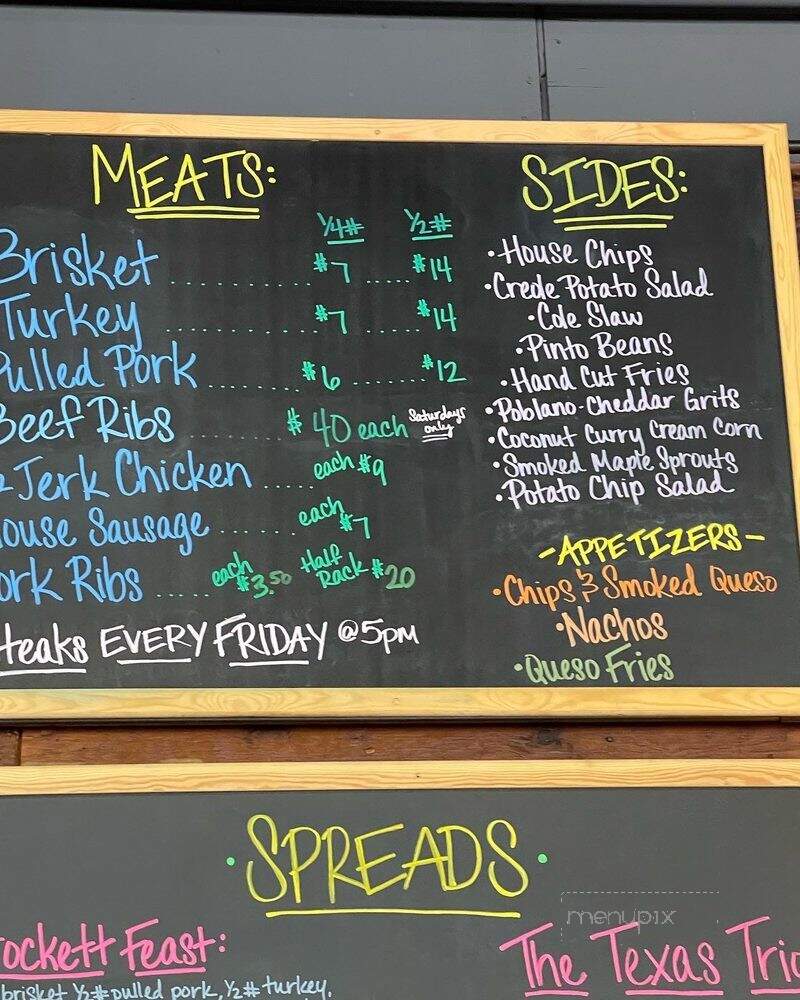 MEATS:
1/4# 1/2#
Brisket .............. $7 ...... $14
Turkey .............. $7 ...... $14
Pulled Pork .......... $6 .......... $12
Beef Ribs .......... $40 each Saturdays only
Jerk Chicken ..... each $9
House Sausage ....... each $7
Pork Ribs ..... each $3.50 Half Rack $20
Steaks EVERY FRIDAY @5PM
SIDES:
•House Chips
•Creole Potato Salad
•Cole Slaw
•Pinto Beans
•Hand Cut Fries
•Poblano-Cheddar Grits
•Coconut Curry Cream Corn
•Smoked Maple Sprouts
•Potato Chip Salad
-APPETIZERS-
•Chips & Smoked Queso
•Nachos
•Queso Fries
•SPREADS•
menupix
ockett Feast:
brisket 1/2# pulled pork, 1/2# turkey.
The Texas Trio